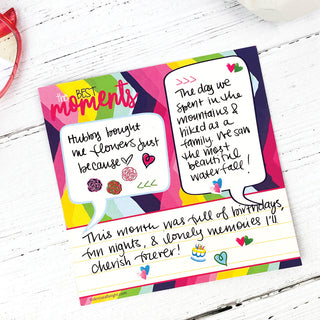 the BEST
moments
Hubby bought
me flowers just
because
The day we
spent in the
mountains &
hiked as a
family. We saw
the most
beautiful
waterfall!
This month was full of birthdays,
fun nights, & lovely memories I'll
cherish forever!